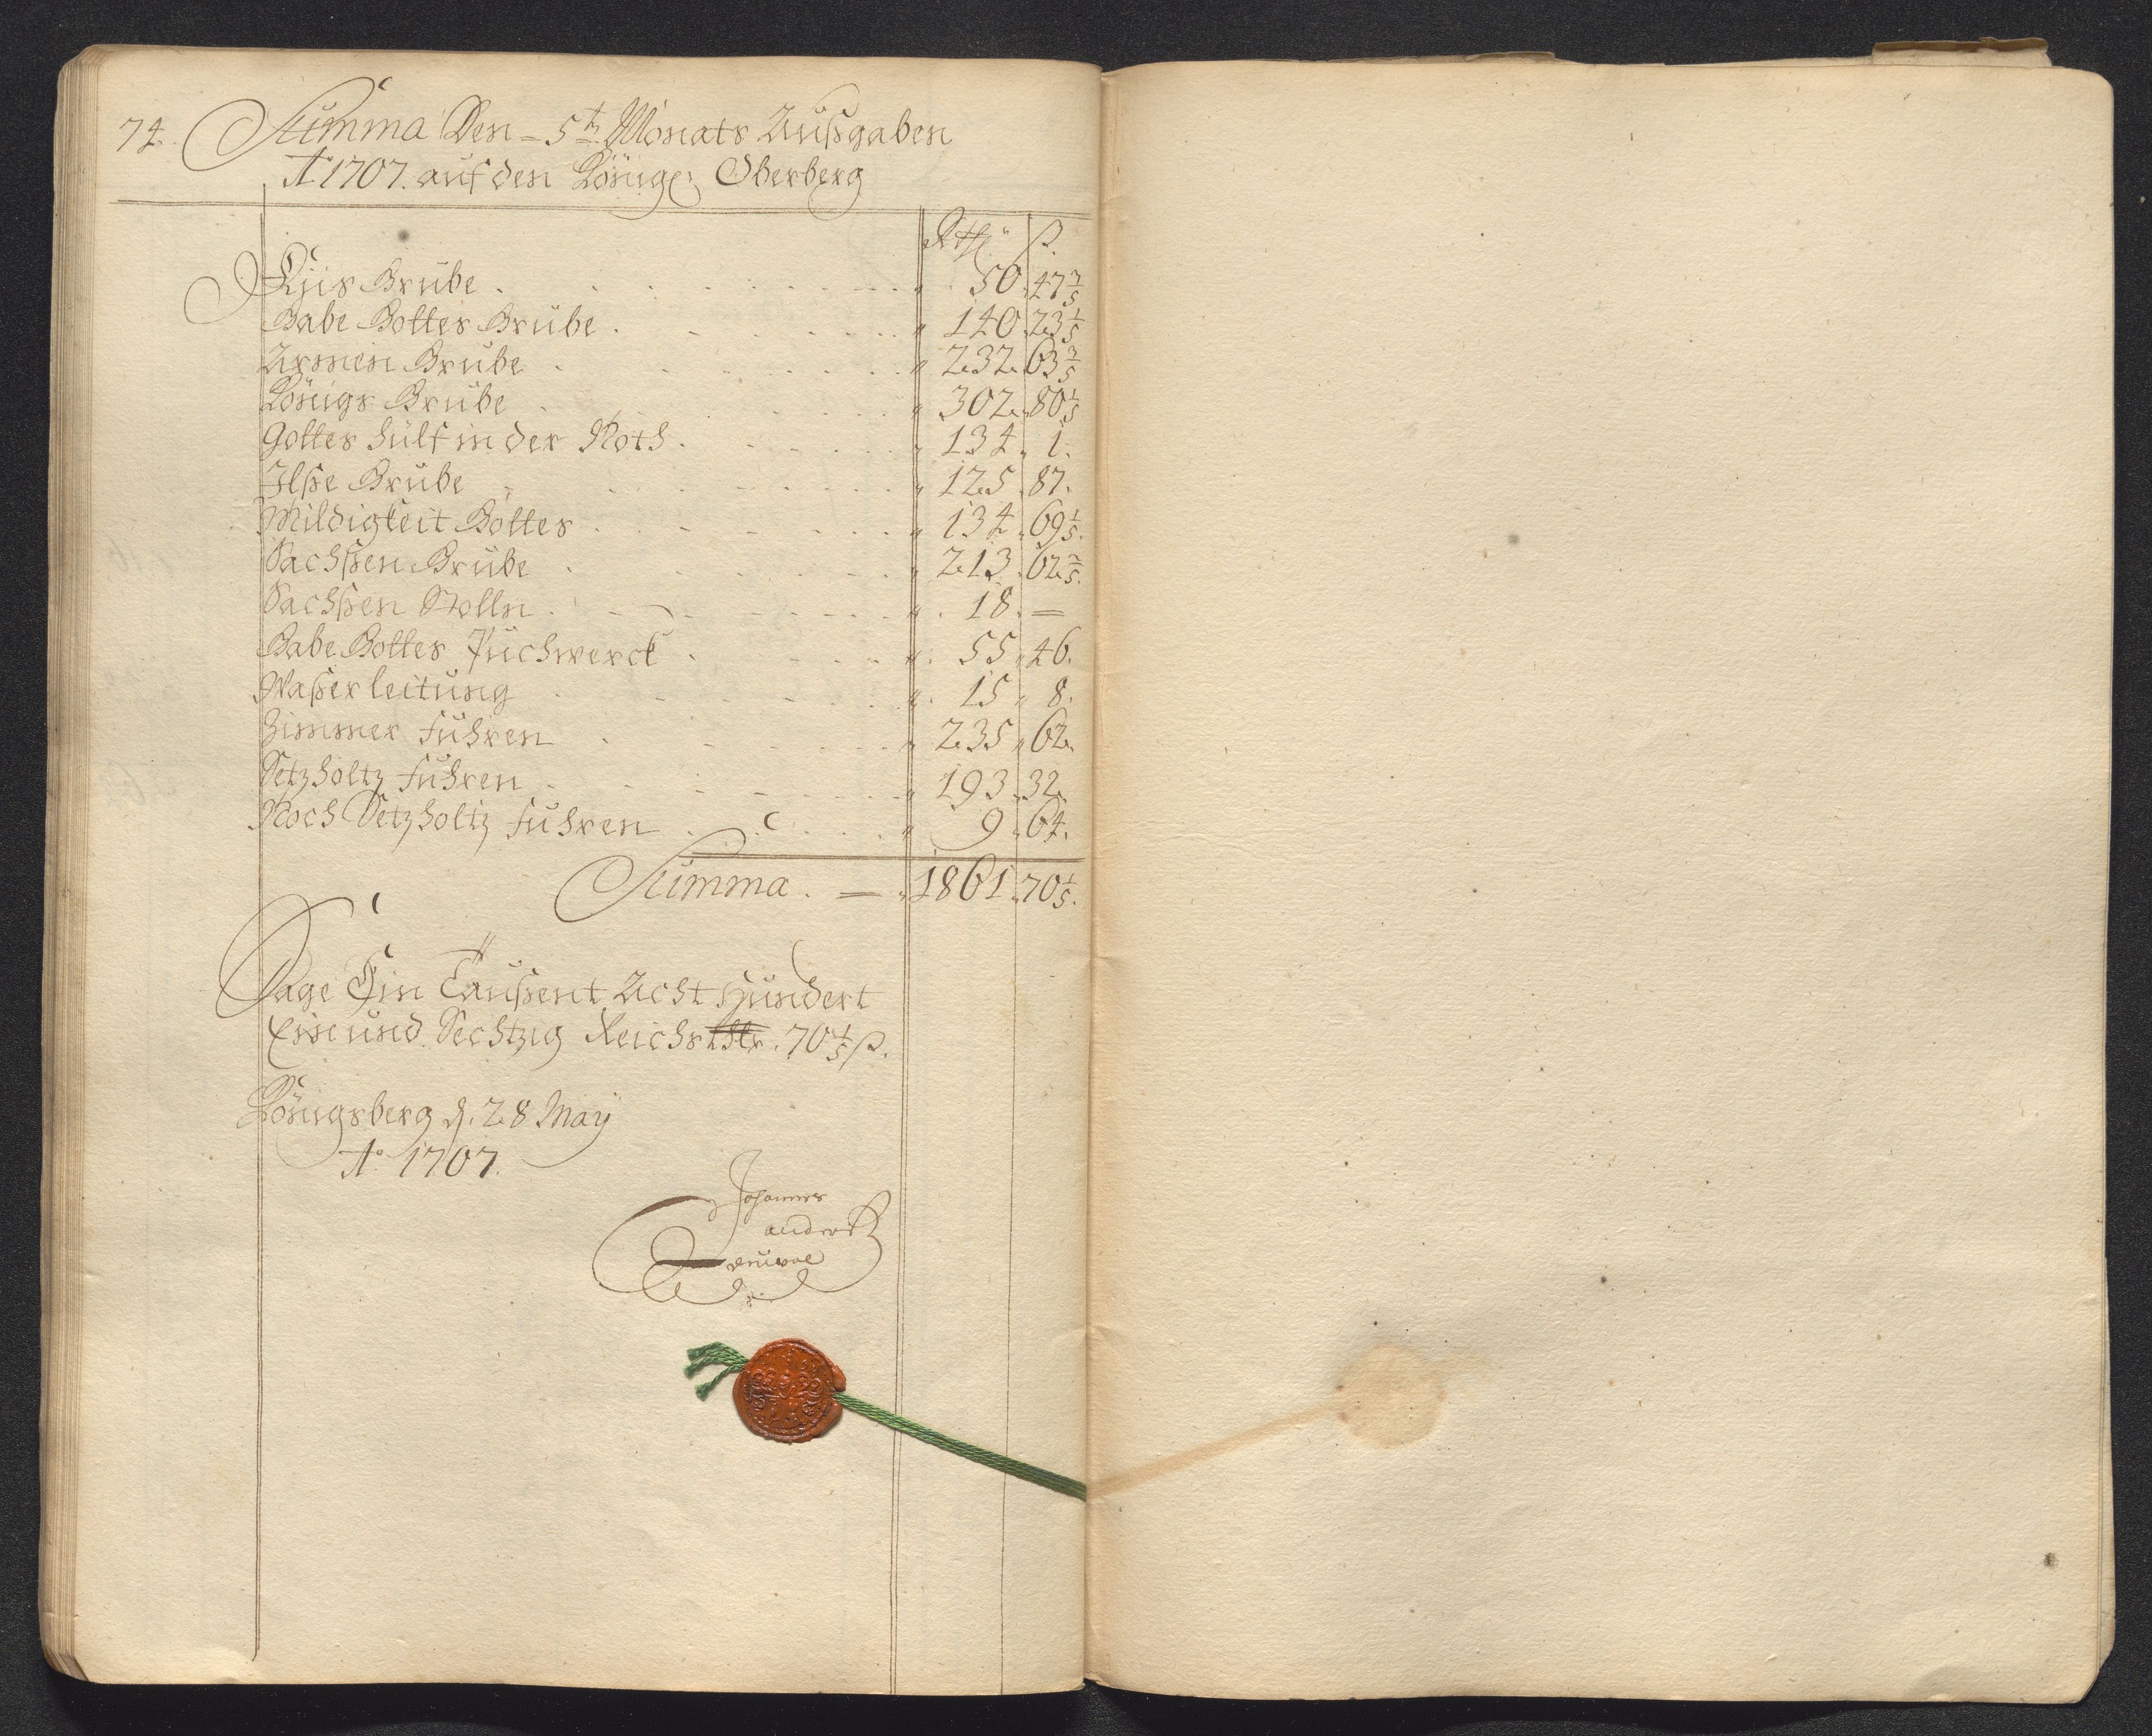 74. Summa Den 5t Monats Außgaben
Ao 1707. auf den Königs: Oberberg
Rthl ß.
Kjis Grube 50 47 3/5
Gabe Gottes Grube 140 23 1/5
Armen Grube 232 63 3/5
Königs Grube 302 80 1/5
Gottes Hülf in der Noth 134 1.
Ilße Grube 125 87.
Mildigkeit Gottes 134 69 1/5.
Sachßen Grube 213 62 2/5.
Sachßen Stolln 18. —
Gabe Gottes Puchwerck 55 46.
Waßerleitung 15 8.
Zimmer Fuhren 235 62.
Setzholtz Fuhren 193 32.
Noch Setzholtz Fuhren 9 64.
Summa. — 1861 70 1/5.
Sage Ein Taußent Acht Hundert
Ein und Sechtzig Reichsthlr. 70 1/5 ß.
Königsberg d. 28 May
Ao 1707.
Johannes